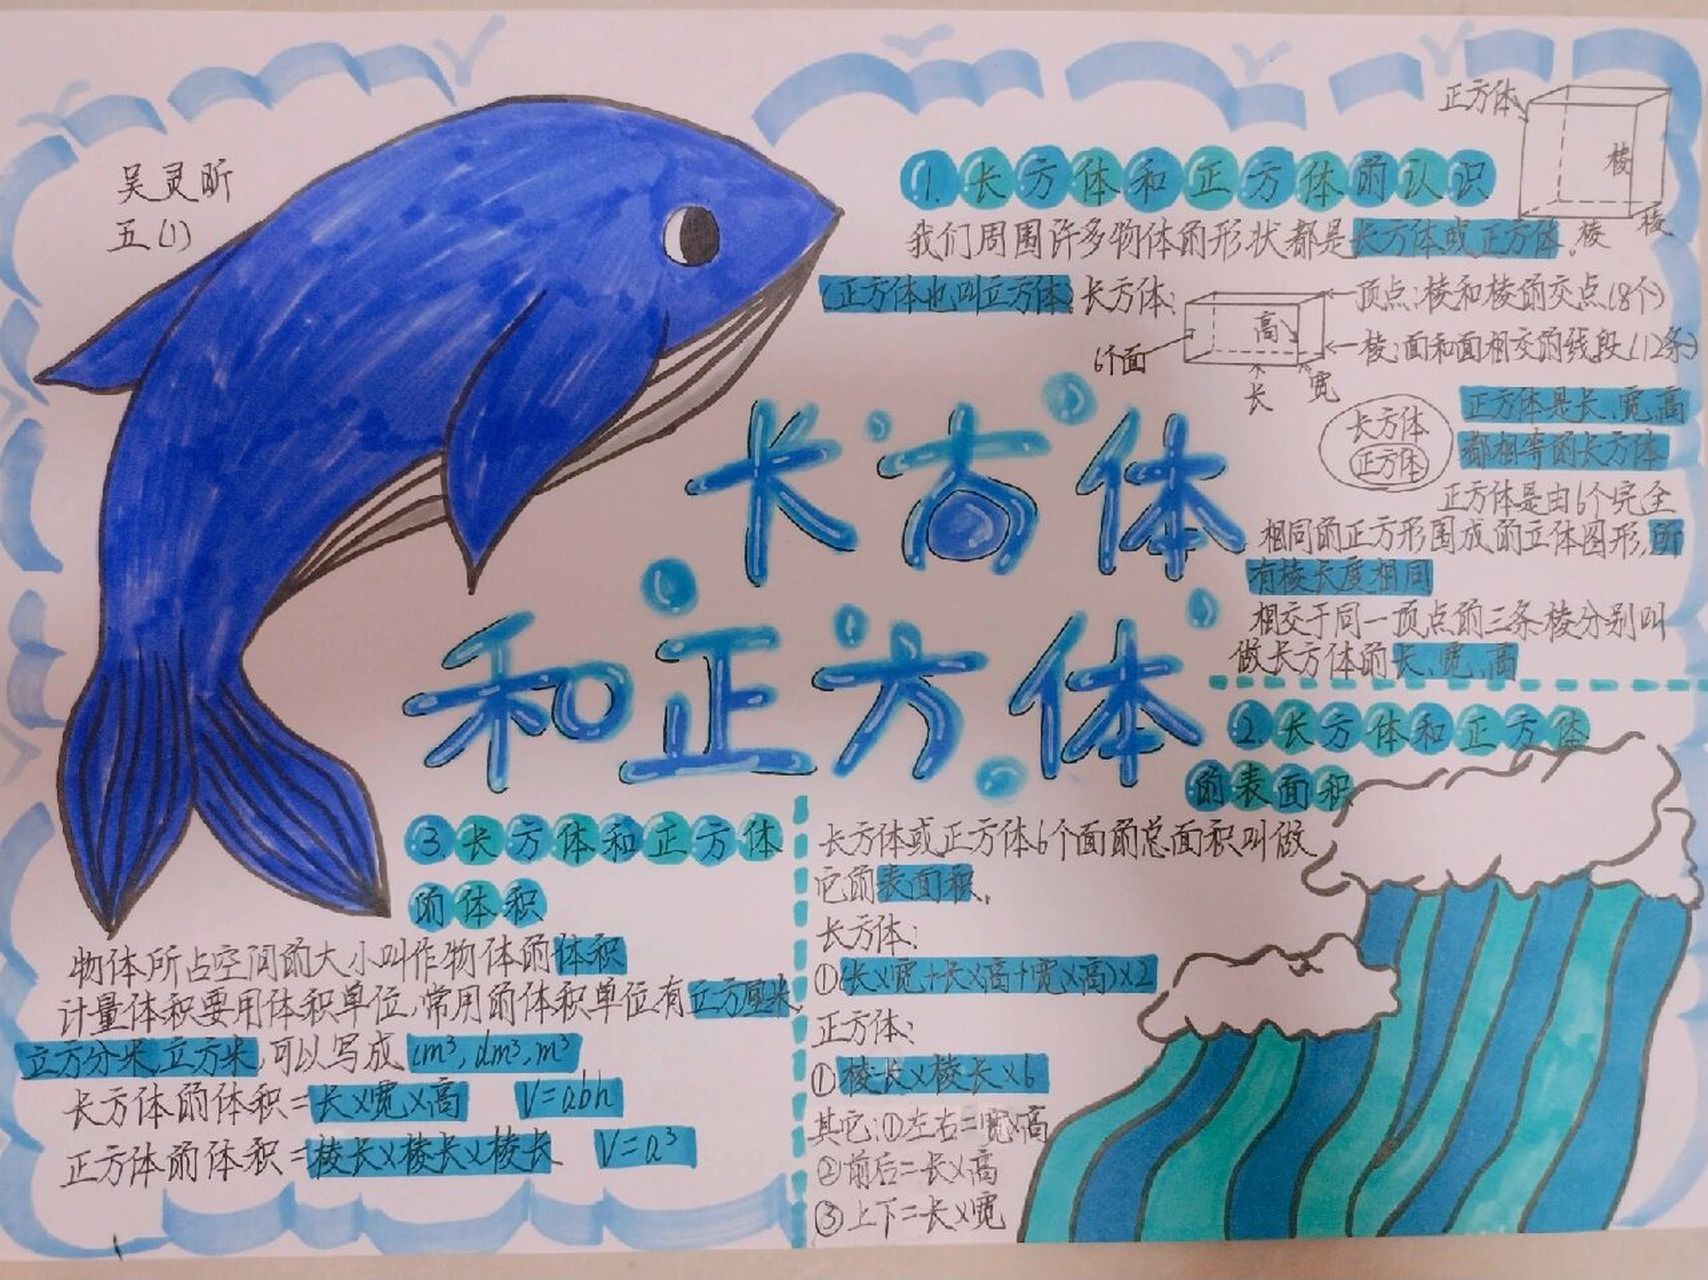 吴灵昕
五(1)
1.长方体和正方体的认识
正方体
棱
棱
棱
我们周围许多物体的形状都是长方体或正方体。
(正方体也叫立方体)。长方体:
6个面
高
长
宽
顶点:棱和棱的交点(8个)
棱:面和面相交的线段(12条)
长方体
正方体
正方体是长、宽、高
都相等的长方体
正方体是由6个完全
相同的正方形围成的立体图形,所
有棱长度相同
相交于同一顶点的三条棱分别叫
做长方体的长、宽、高
长方体
和正方体
2.长方体和正方体
的表面积
长方体或正方体6个面的总面积叫做
它的表面积。
长方体:
①(长×宽+长×高+宽×高)×2
正方体:
①棱长×棱长×6
其它:①左右=宽×高
②前后=长×高
③上下=长×宽
3.长方体和正方体
的体积
物体所占空间的大小叫作物体的体积
计量体积要用体积单位,常用的体积单位有立方厘米、
立方分米、立方米,可以写成cm³,dm³,m³
长方体的体积=长×宽×高 V=abh
正方体的体积=棱长×棱长×棱长 V=a³